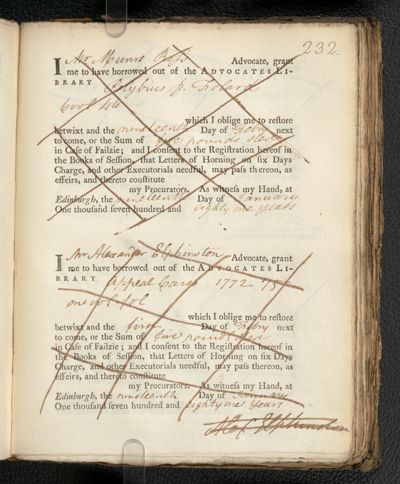 232.
I Mr Munro Ross Advocate, grant
me to have borrowed out of the ADVOCATES LI-
BRARY Polybius p. Folard
6 vol 4to
which I oblige me to restore
betwixt and the nineteenth Day of Febry next
to come, or the Sum of pounds sterl
in Case of Failzie; and I consent to the Registration hereof in
the Books of Session, that Letters of Horning on six Days
Charge, and other Executorials needful, may pass thereon, as
effeirs, and thereto constitute
my Procurators. As witness my Hand, at
Edinburgh, the nineteenth Day of January
One thousand seven hundred and eighty one years
I Mr Alexander Elphinston Advocate, grant
me to have borrowed out of the ADVOCATES LI-
BRARY Appeal Cases 1772-75
one vol fol
which I oblige me to restore
betwixt and the first Day of Febry next
to come, or the Sum of five pounds sterl
in Case of Failzie; and I consent to the Registration hereof in
the Books of Session, that Letters of Horning on six Days
Charge, and other Executorials needful, may pass thereon, as
effeirs, and thereto constitute
my Procurators. As witness my Hand, at
Edinburgh, the nineteenth Day of January
One thousand seven hundred and eighty one years
Alex Elphinston